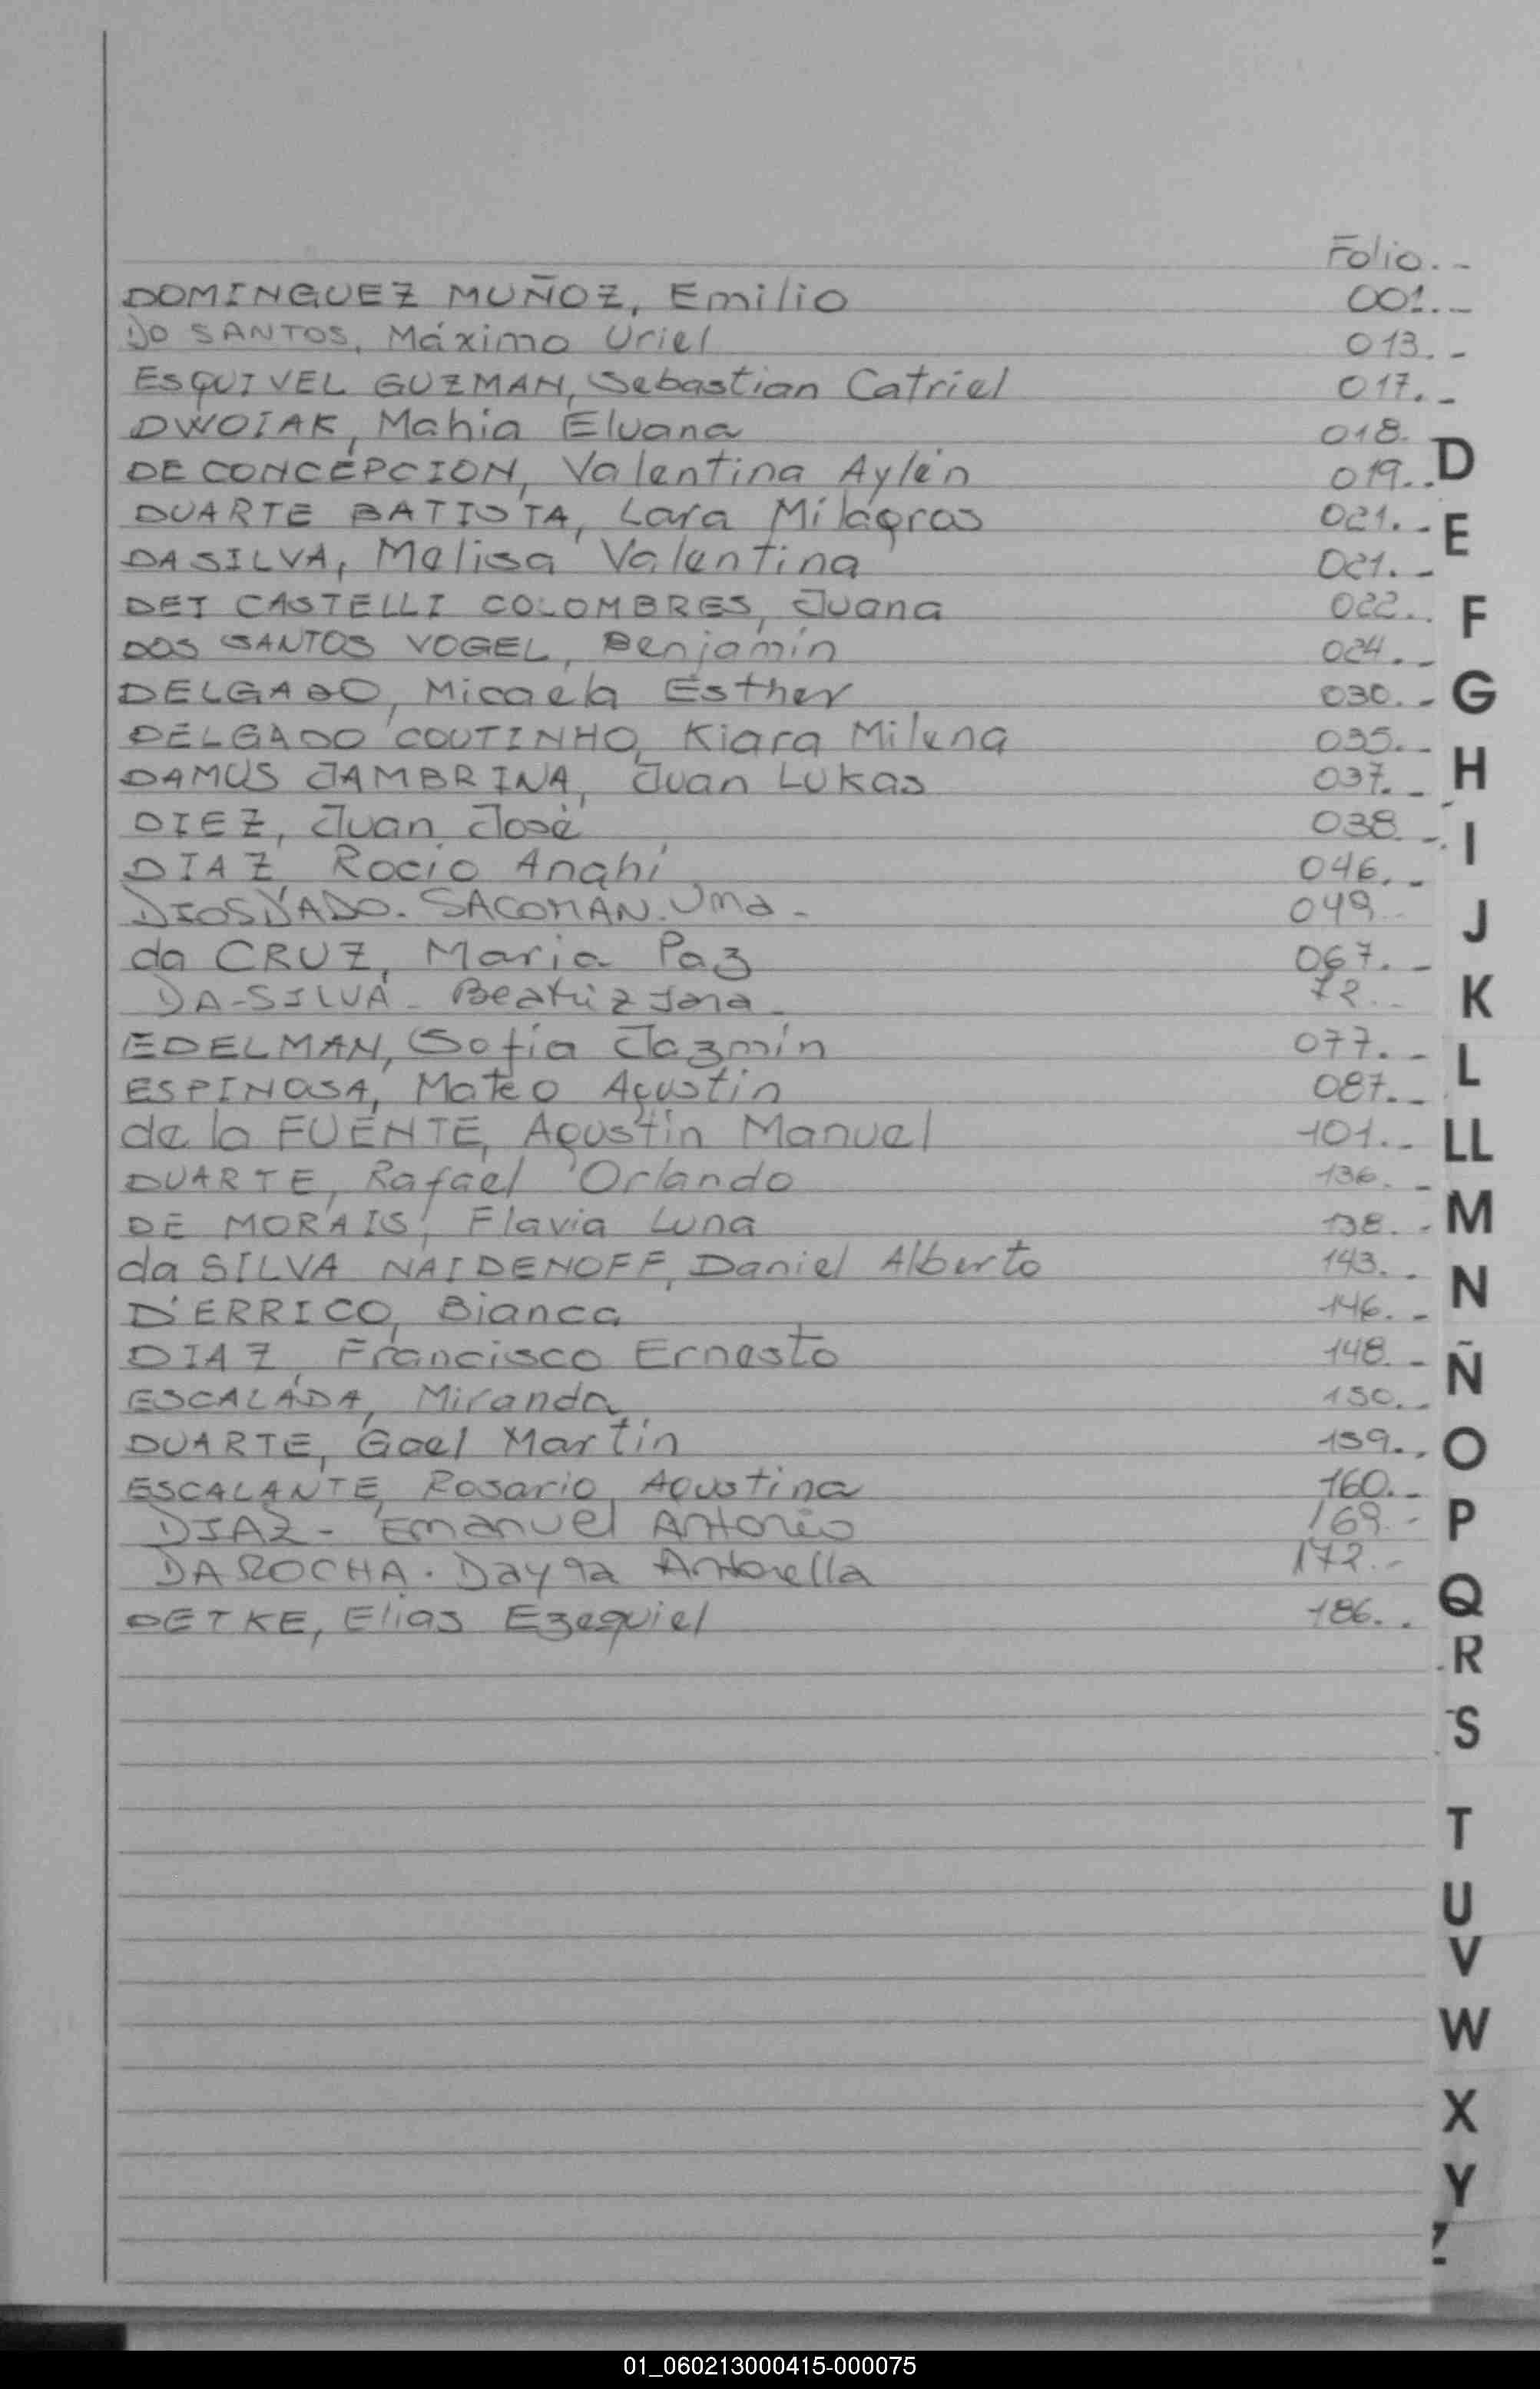 Folio.-
DOMINGUEZ MUÑOZ, Emilio 001.-
DO SANTOS, Máximo Uriel 013.-
ESQUIVEL GUZMAN, Sebastian Catriel 017.-
DWOIAK, Mahia Eluana 018.
DE CONCEPCION, Valentina Aylén 019.-
DUARTE BATISTA, Lara Milagros 021.-
DA SILVA, Melisa Valentina 021.-
DEI CASTELLI COLOMBRES, Juana 022.
DOS SANTOS VOGEL, Benjamín 024.-
DELGADO, Micaela Esther 030.-
DELGADO COUTINHO, Kiara Milena 035.-
DAMUS JAMBRINA, Juan Lukas 037.-
DIEZ, Juan José 038.-
DIAZ, Rocío Anahí 046.-
DIOSDADO. SACOMAN. Uma - 049.-
da CRUZ, Maria Paz 067.-
DA-SILVA - Beatriz Jana - 72.-
EDELMAN, Sofía Jazmín 077.-
ESPINOSA, Mateo Agustín 087.-
de la FUENTE, Agustín Manuel 101.-
DUARTE, Rafael Orlando 136.-
DE MORAIS, Flavia Luna 138.-
da SILVA NAIDENOFF, Daniel Alberto 143.-
D'ERRICO, Bianca 146.-
DIAZ, Francisco Ernesto 148.-
ESCALADA, Miranda 150.-
DUARTE, Gael Martín 159.-
ESCALANTE, Rosario Agustina 160.-
DIAZ - Emanuel Antonio 169.-
DAROCHA. Antonella 172.-
DETKE, Elias Ezequiel 186.-
D
E
F
G
H
I
J
K
L
LL
M
N
Ñ
O
P
Q
R
S
T
U
V
W
X
Y
01_060213000415-000075